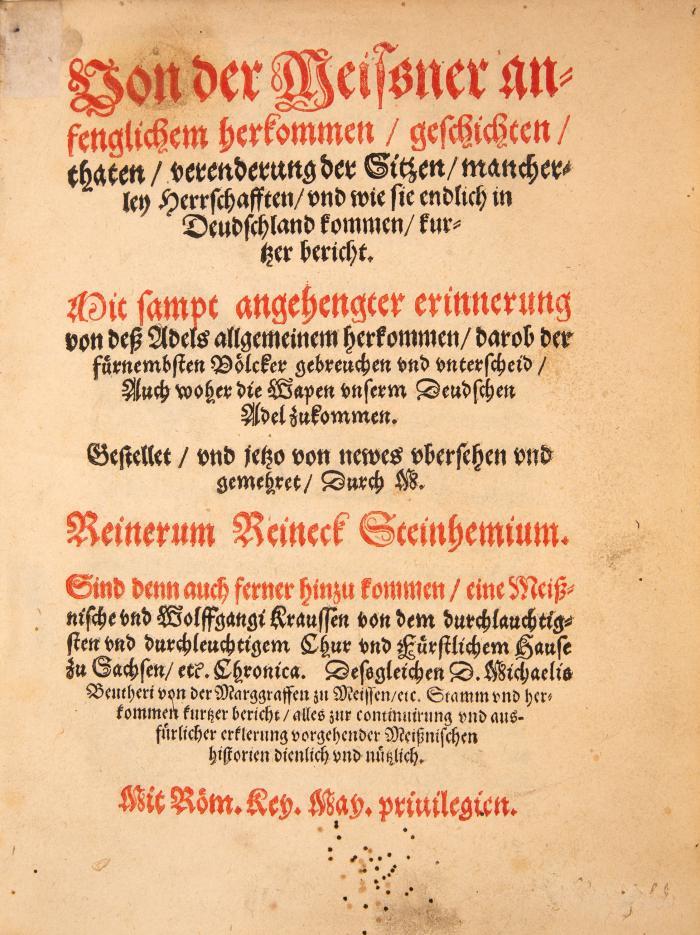 Von der Meiſsner an⸗
fenglichem herkommen / geſchichten /
thaten / verenderung der Sitzen / mancher⸗
ley Herrſchafften / vnd wie ſie endlich in
Deudſchland kommen / kur⸗
tzer bericht.
Mit ſampt angehengter erinnerung
von deß Adels allgemeinem herkommen / darob der
fürnembſten Völcker gebreuchen vnd vnterſcheid /
Auch woher die Wapen vnſerm Deudſchen
Adel zukommen.
Geſtellet / vnd jetzo von newes vberſehen vnd
gemehret / Durch M.
Reinerum Reineck Steinhemium.
Sind denn auch ferner hinzu kommen / eine Meiß⸗
niſche vnd Wolffgangi Krauſſen von dem durchlauchtig⸗
ſten vnd durchleuchtigem Chur vnd Fürſtlichem Hauſe
zu Sachſen / etc. Chronica. Deſsgleichen D. Michaelis
Beutheri von der Marggraffen zu Meiſſen / etc. Stamm vnd her⸗
kommen kurtzer bericht / alles zur continuirung vnd aus⸗
fürlicher erklerung vorgehender Meißniſchen
hiſtorien dienlich vnd nützlich.
Mit Röm. Key. May. priuilegien.